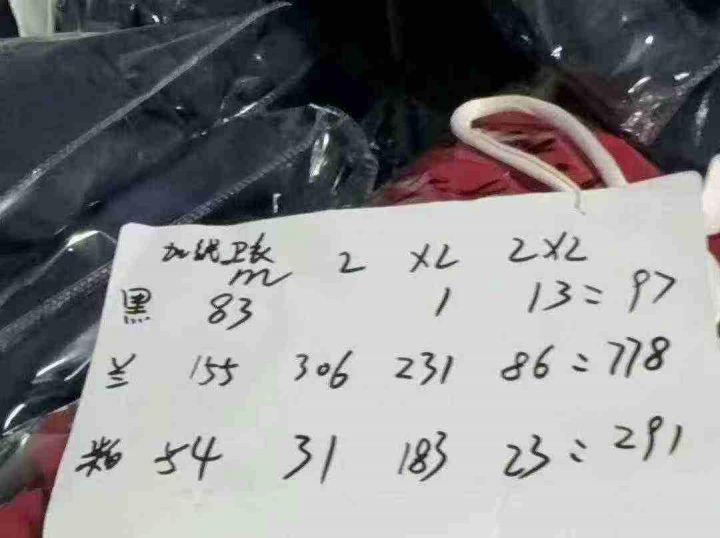 加绒卫衣
m 2 X2 2X2
黑 83 1 13=97
兰 155 306 231 86=778
粉 54 31 183 23=291